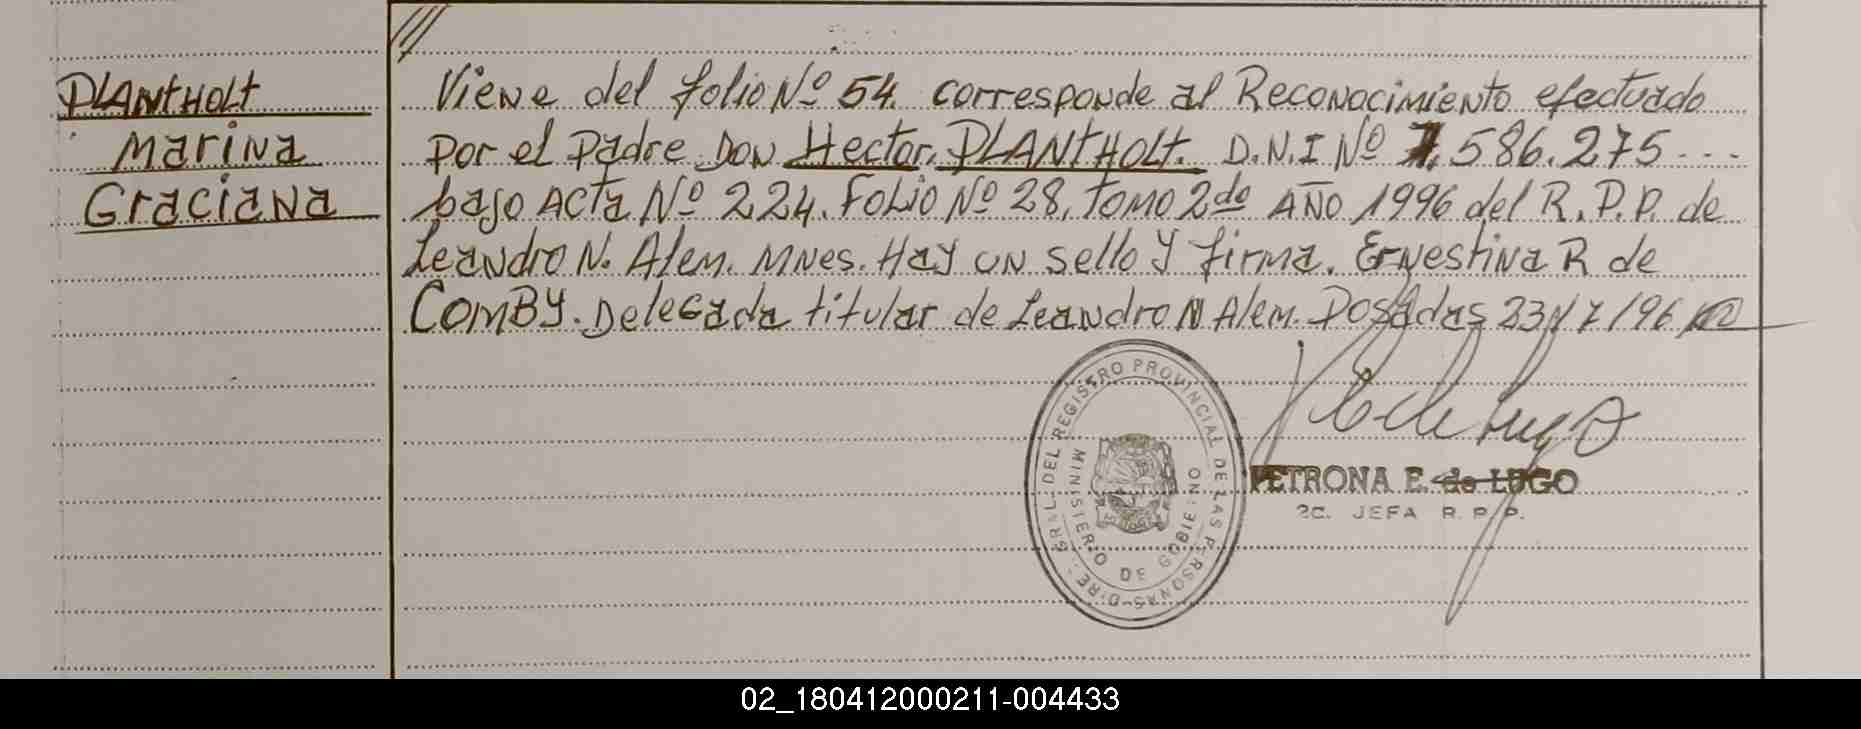 PLANTHOLT
Marina
Graciana
Viene del folio Nº 54. corresponde al Reconocimiento efectuado
Por el Padre Don Hector. PLANTHOLT. D.N.I Nº 7.586.275 ---
bajo Acta Nº 224. Folio Nº 28, Tomo 2do Año 1996 del R.P.P. de
Leandro N. Alem. Mnes. Hay un sello y firma. Ernestina R de
COMBY. Delegada titular de Leandro N Alem. Posadas 23/7/96
DIRE. GRAL. DEL REGISTRO PROVINCIAL DE LAS PERSONAS
MINISTERIO DE GOBIERNO
PETRONA E. de LUGO
2C. JEFA R.P.P.
02_180412000211-004433